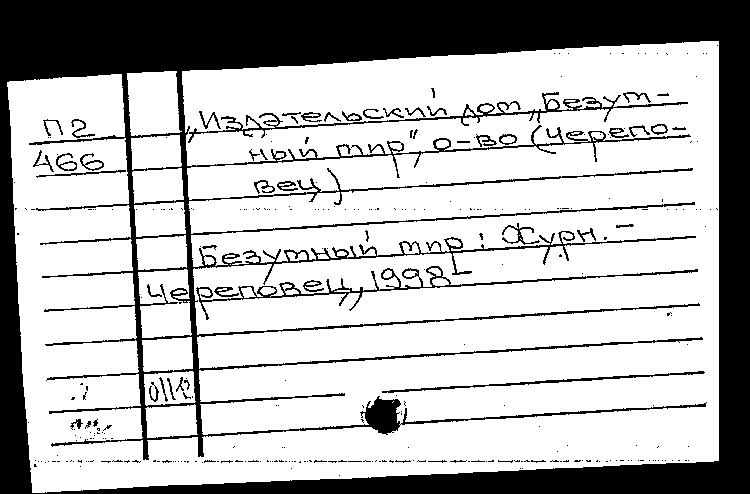 П2
466
„Издательский дом „Безум-
ный мир", о-во (Черепо-
вец)
Безумный мир: Журн. -
Череповец, 1998-